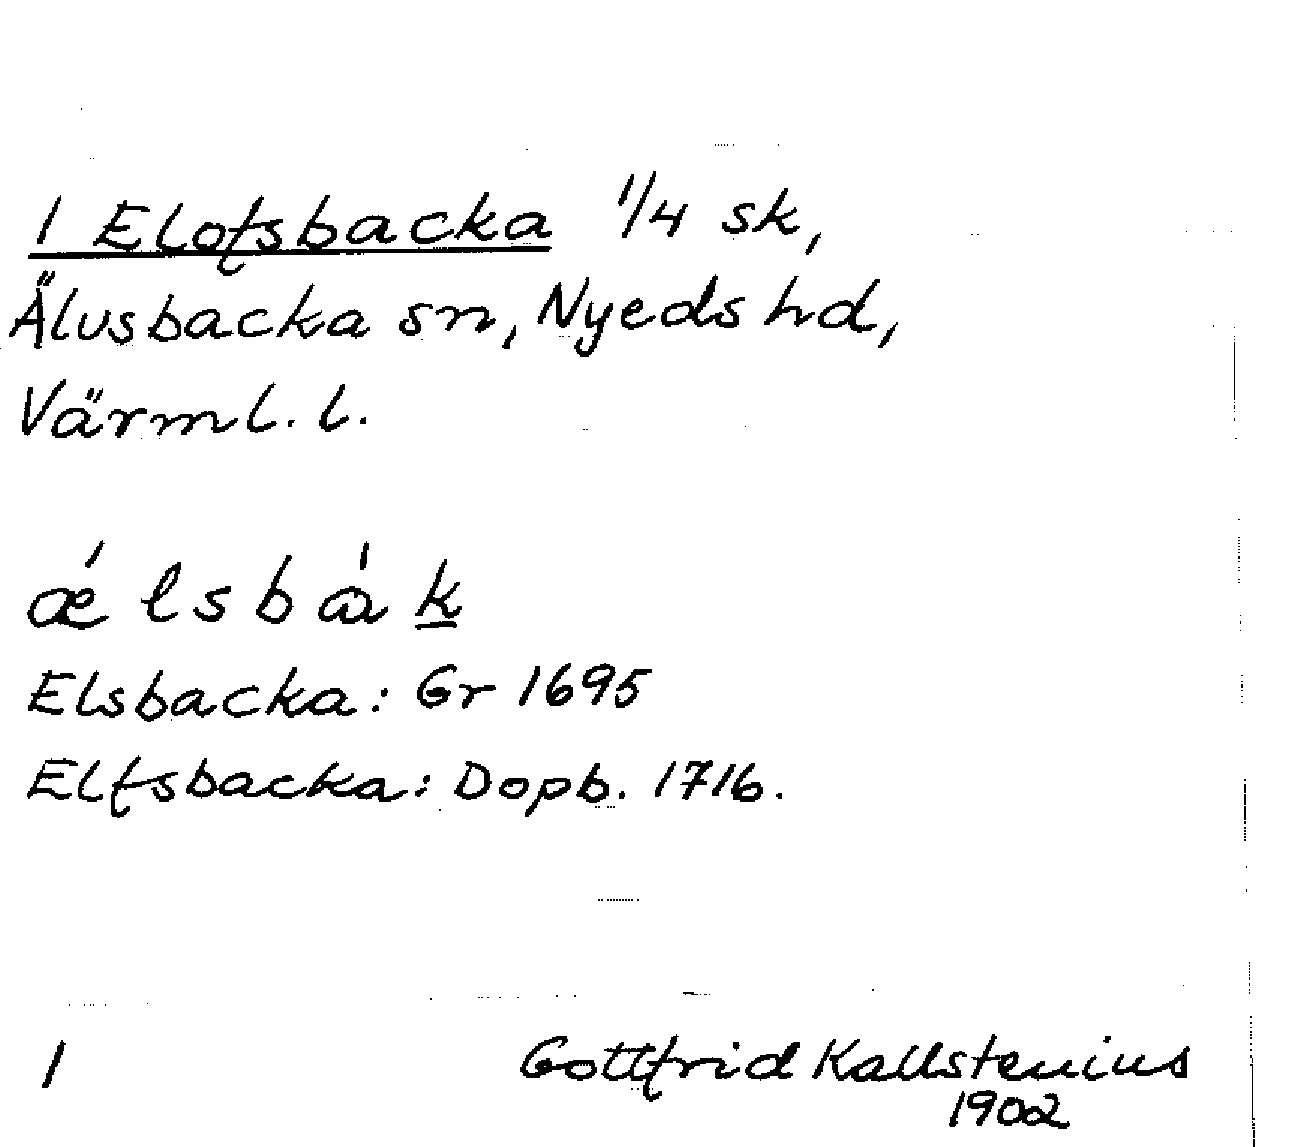 1 Elofsbacka 1/4 sk,
Älvsbacka sn, Nyeds hd,
Värml. l.
ǽ l s b à k
Elsbacka: Gr 1695
Elfsbacka: Dopb. 1716.
1 Gottfrid Kallstenius
1902